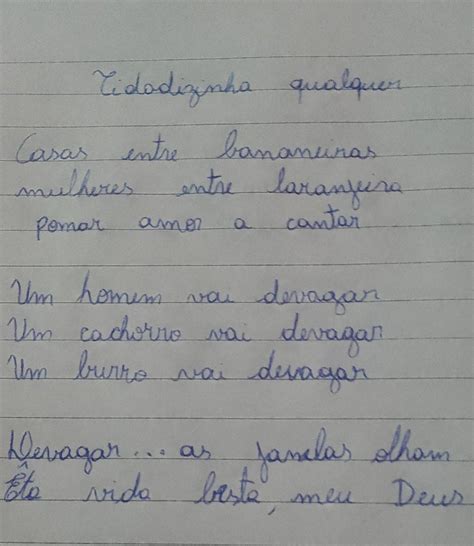 Cidadizinha qualquer
Casas entre bananeiras
mulheres entre laranjeira
pomar amor a cantar
Um homem vai devagar
Um cachorro vai devagar
Um burro vai devagar
Devagar... as janelas olham
Êta vida besta, meu Deus